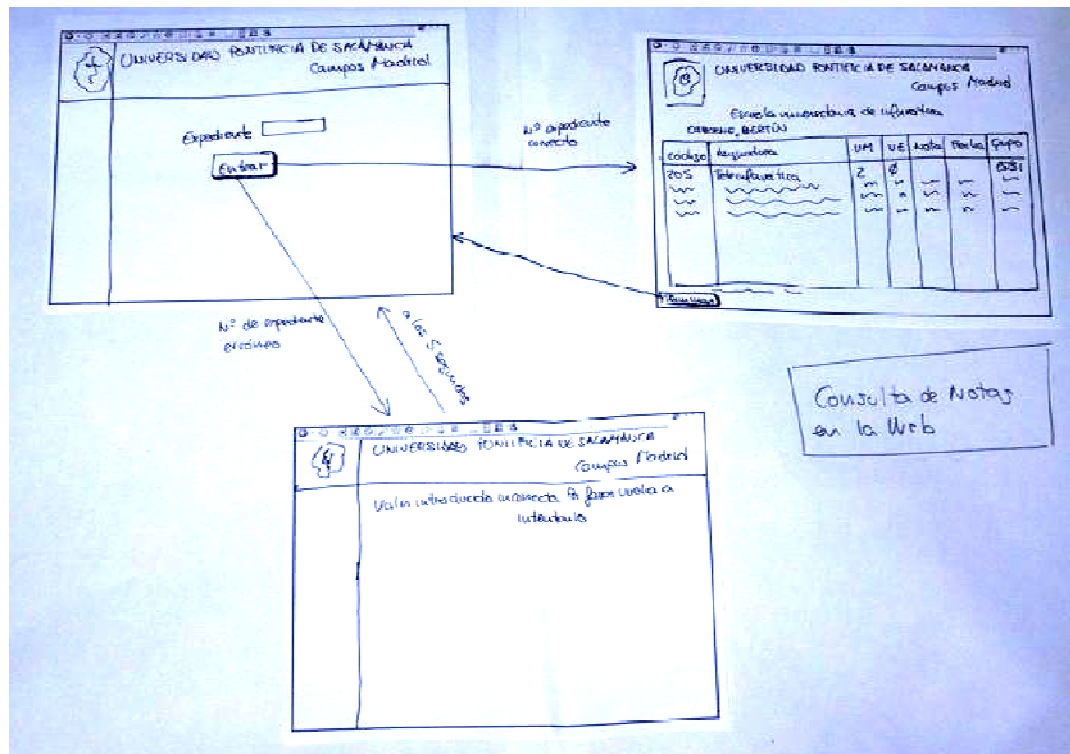 UNIVERSIDAD PONTIFICIA DE SALAMANCA
Campus Madrid
Expediente
Entrar
Nº expediente
correcto
UNIVERSIDAD PONTIFICIA DE SALAMANCA
Campus Madrid
Escuela universitaria de informática
OSBORNE, BERTÍN
Código Asignatura UM UE Nota Fecha Grupo
205 Teleinformática 2 0
Nº de expediente
erróneo
a los 5 segundos
UNIVERSIDAD PONTIFICIA DE SALAMANCA
Campus Madrid
Valor introducido incorrecto. Por favor vuelva a
intentarlo
Consulta de Notas
en la Web